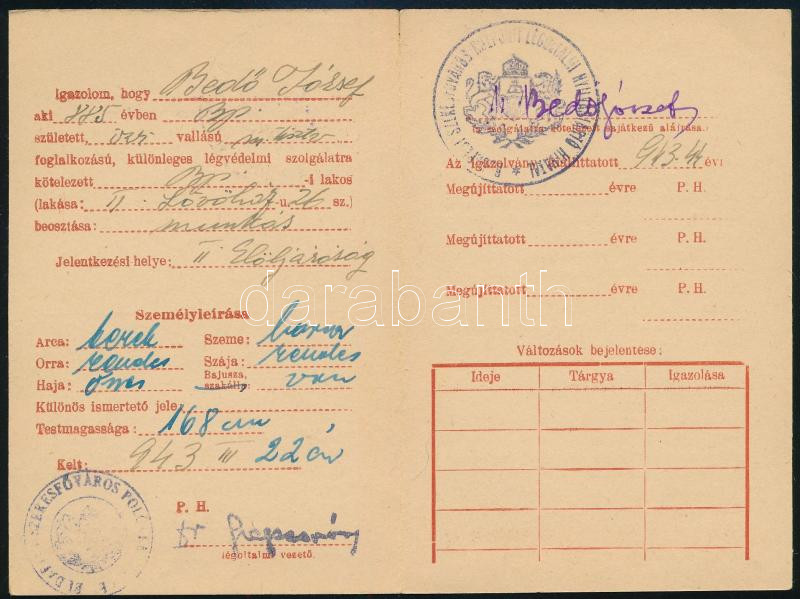 Igazolom, hogy Bedő József
aki 885 évben Bp.
született vallású
foglalkozású, különleges légvédelmi szolgálatra
kötelezett Bp. -i lakos
(lakása: II. Lövőház u. 26 sz.)
beosztása: munkás
Jelentkezési helye: II Elöljáróság
Személyleírása
Arca: kerek Szeme: barna
Orra: rendes Szája: rendes
Haja: ősz Bajusza, szakálla: van
Különös ismertető jele:
Testmagassága: 168 cm
Kelt: 943 III 22 én
P. H.
Dr
légoltalmi vezető.
SZÉKESFŐVÁROS
Bedő József
az szolgálatra kötelezett sajátkezű aláírása.
Az igazolvány kiállíttatott 943-44 évi
Megújíttatott évre P. H.
Megújíttatott évre P. H.
Megújíttatott évre P. H.
Változások bejelentése:
Ideje Tárgya Igazolása
darabanth